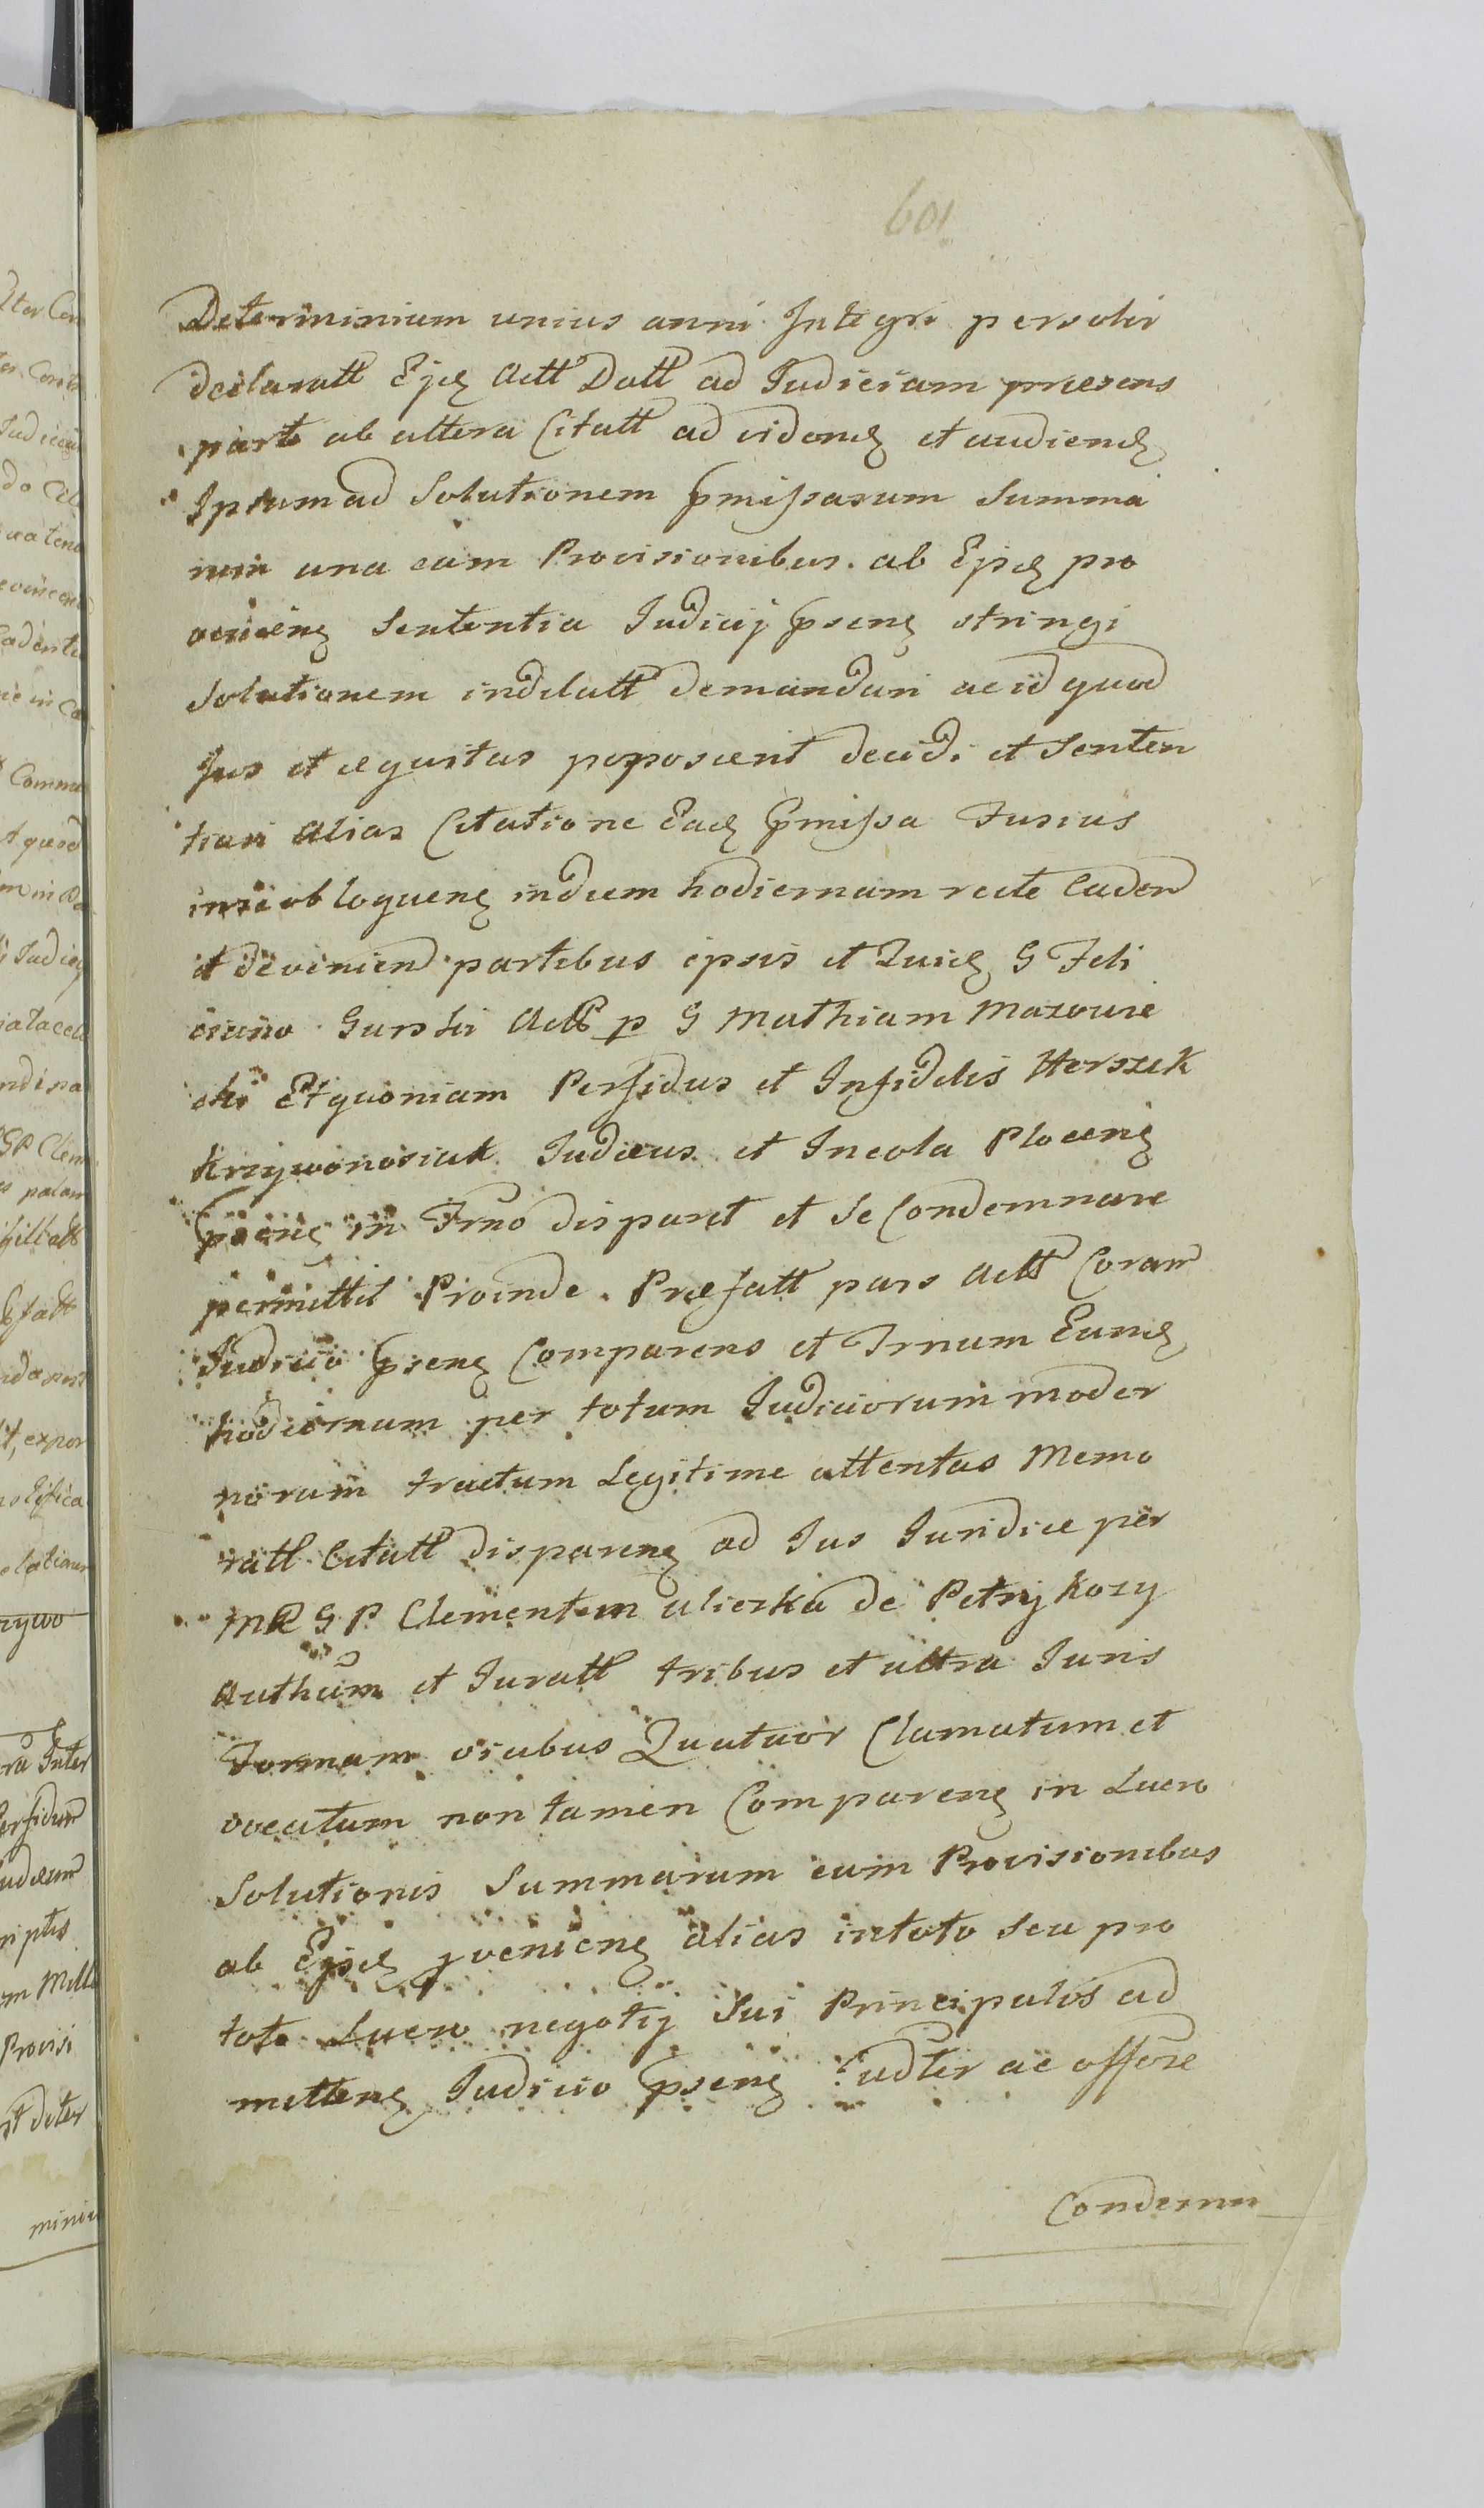 601
Determinium unius anni Integri persolvi
declaratt Ejq Actt Datt ad Judicium praesens
parte ab altera Citatt ad videnq et audienq
Ipsum ad Solutionem pmissarum Summa
rum una cum Provisionibus ab Ejsq pro
venienq Sententia Judicij psenq stringi
Solutionem indilatt demandari ac id quod
Jus et aequitas poposcerit decidi et Senten
tiari alias Citatione Eadq pmissa Fusius
in se obloquenq in diem hodiernam recte Caden
et devenien partibus ipsis et Quidq G Feli
ciano Gurski Actt p G Mathiam Mazowie
cki Et quoniam Perfidus et Infidelis Herszek
Krzywonosiak Judaeus et Incola Plocenq
psenq in Trno disparet et se Condemnare
permittit Proinde Praefatt pars Actt Coram
Judicio psenq Comparens et Trnum Eunq
hodiernum per totum Judiciorum moder
norum tractum Legitime attentas Memo
ratt Citatt disparenq ad Jus Juridice per
MR G P Clementem Ulierka de Petrykozy
Authum et Juratt tribus et ultra Juris
Formam vicibus Quatuor Clamatum et
vocatum non tamen Comparenq in Lucro
Solutionis Summarum cum Provisionibus
ab Ejsq pvenienq alias in toto seu pro
toto Lucro negotij Sui Principalis ad
mittenq Judicio psenq Judter ac offore
Condemn
Iter Con
Judiciu
Commu
t quod
in Judicij
GP Clem
palam
sfatt
t, expor
rzywo
Inter
Perfidum
Judaeum
m Mille
Provisi
deter
miniu